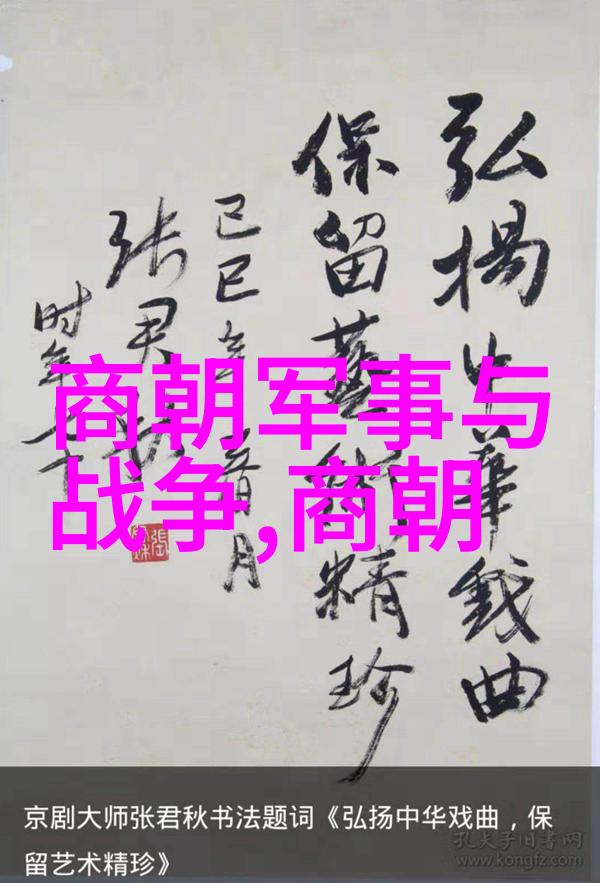 弘揚中華戲曲
保留藝術精珍
己巳年春月
张君秋
时年七十
商朝军事与
战争,商朝
京剧大师张君秋书法题词《弘扬中华戏曲，保
留艺术精珍》
孔夫子旧书网
www.kongfz.com